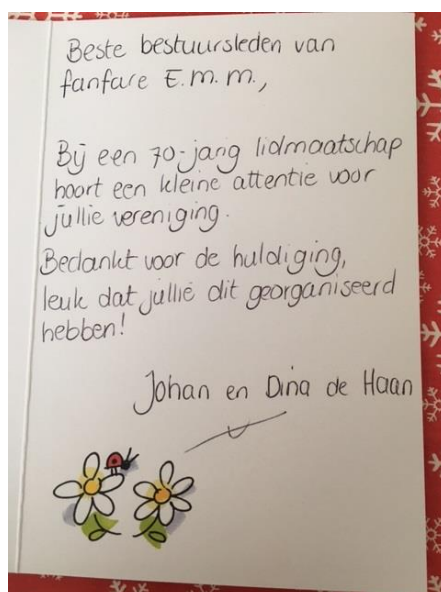 Beste bestuursleden van
fanfare E.m.m.,
Bij een 70-jarig lidmaatschap
hoort een kleine attentie voor
jullie vereniging.
Bedankt voor de huldiging,
leuk dat jullie dit georganiseerd
hebben!
Johan en Dina de Haan